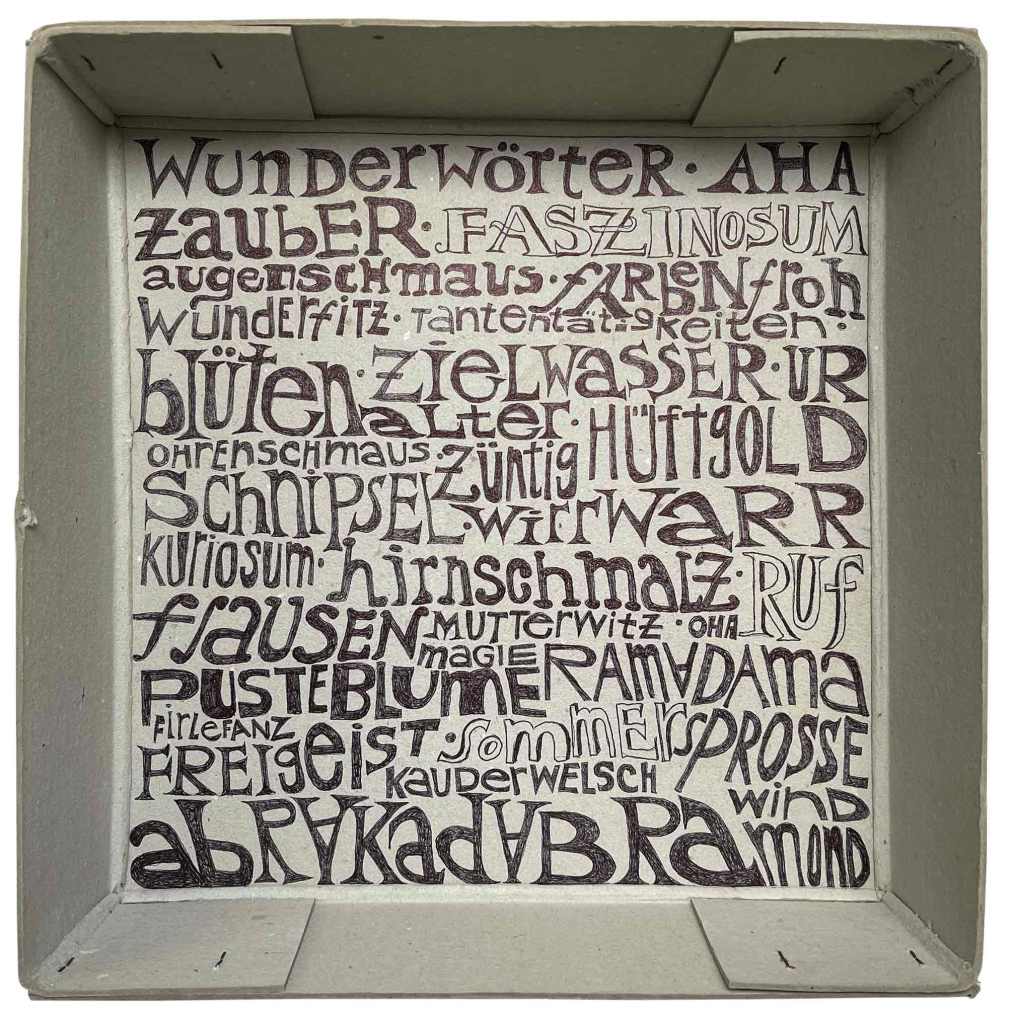 WUNDERWÖRTER · AHA
ZAUBER · FASZINOSUM
augenschmaus · FARBENfroh
WUNDERFITZ · Tantentätigkeiten ·
blüten · ZIELWASSER · UR
alter · HÜFTGOLD
OHRENSCHMAUS · züntig
SCHNIPSEL · WIRRWARR
KURIOSUM · hirnschmalz · RUf
flAUSEN MUTTERWITZ · OHA
MAGIE RAMADAMA
PUSTEBLUME
FIRLEFANZ
FREIgeist · SOMMERSPROSSE
KAUDERWELSCH
WIND
abRAKadABRa MOND